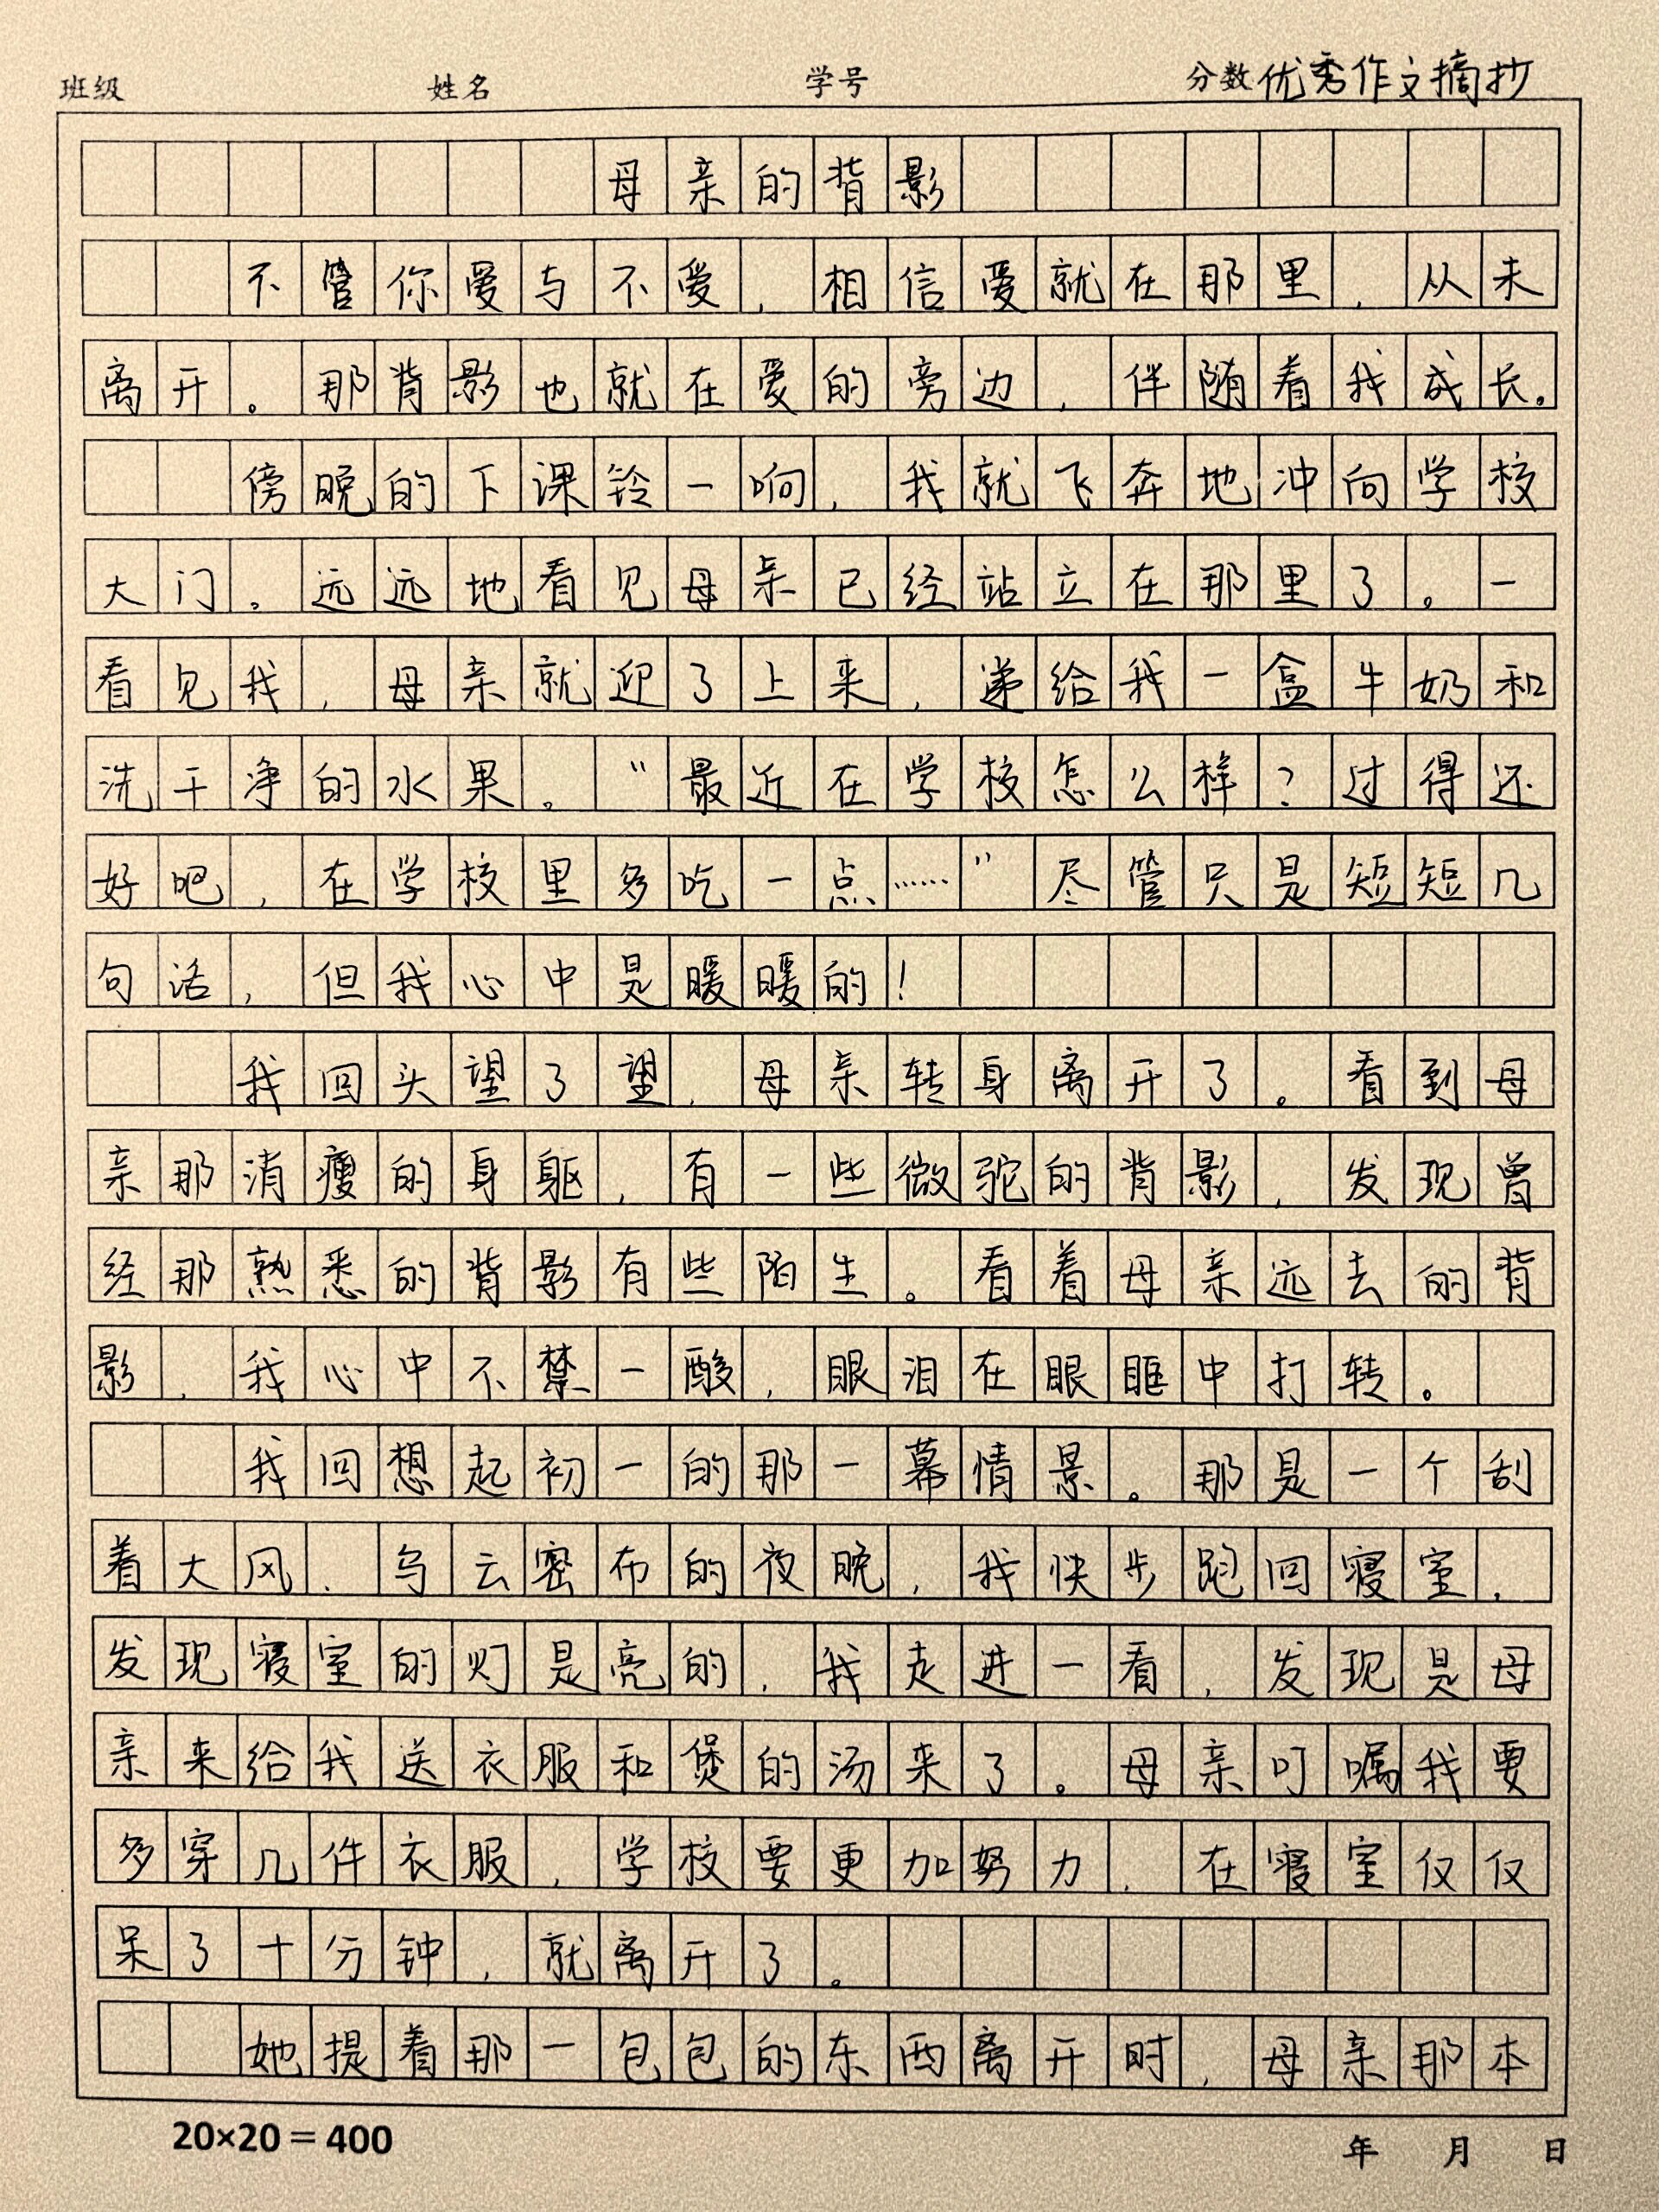 班级 姓名 学号 分数 优秀作文摘抄
母亲的背影
不管你爱与不爱，相信爱就在那里，从未
离开。那背影也就在爱的旁边，伴随着我成长。
傍晚的下课铃一响，我就飞奔地冲向学校
大门。远远地看见母亲已经站立在那里了。一
看见我，母亲就迎了上来，递给我一盒牛奶和
洗干净的水果。“最近在学校怎么样？过得还
好吧，在学校里多吃一点……”尽管只是短短几
句话，但我心中是暖暖的！
我回头望了望，母亲转身离开了。看到母
亲那消瘦的身躯，有一些微驼的背影，发现曾
经那熟悉的背影有些陌生。看着母亲远去的背
影，我心中不禁一酸，眼泪在眼眶中打转。
我回想起初一的那一幕情景。那是一个刮
着大风、乌云密布的夜晚，我快步跑回寝室，
发现寝室的灯是亮的，我走进一看，发现是母
亲来给我送衣服和煲的汤来了。母亲叮嘱我要
多穿几件衣服，学校要更加努力，在寝室仅仅
呆了十分钟，就离开了。
她提着那一包包的东西离开时，母亲那本
20×20＝400 年 月 日